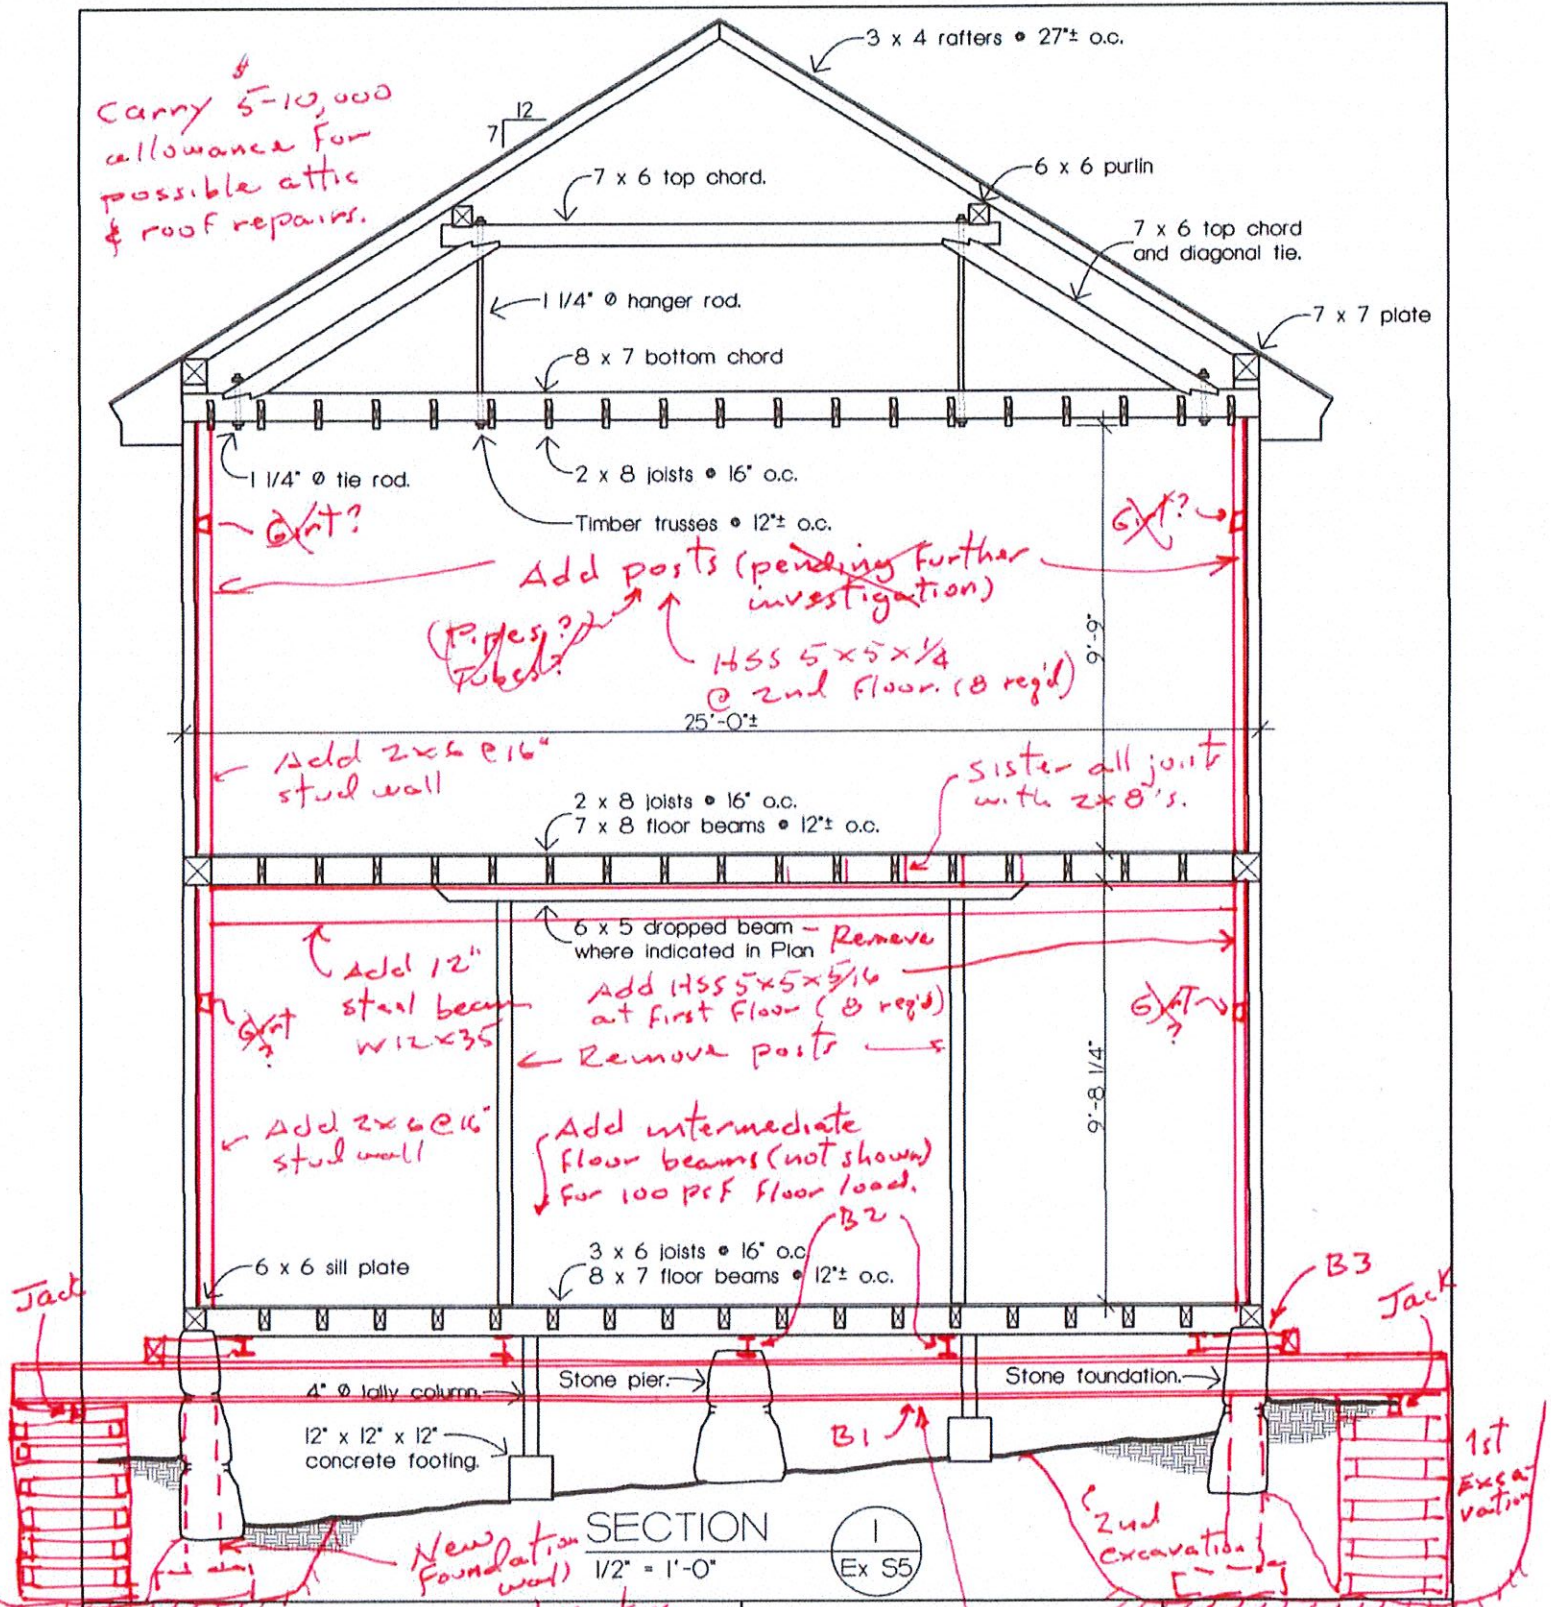 3 x 4 rafters @ 27"± o.c.
$
Carry 5-10,000
allowance for
possible attic
& roof repairs.
12
7
6 x 6 purlin
7 x 6 top chord.
7 x 6 top chord
and diagonal tie.
1 1/4" Ø hanger rod.
7 x 7 plate
8 x 7 bottom chord
1 1/4" Ø tie rod.
2 x 8 joists @ 16" o.c.
Timber trusses @ 12"± o.c.
Girt?
Girt?
Add posts (pending further
investigation)
(Pipes?
Tubes?
HSS 5x5x1/4
@ 2nd floor. (8 req'd)
9'-9"
25'-0"±
Add 2x6 @ 16"
stud wall
Sister all joists
with 2x8's.
2 x 8 joists @ 16" o.c.
7 x 8 floor beams @ 12"± o.c.
6 x 5 dropped beam – Remove
where indicated in Plan
Add 12"
steel beam
W12x35
Add HSS 5x5x5/16
at first floor (8 req'd)
Girt
?
Girt
?
Remove posts
9'-8 1/4"
Add 2x6 @ 16"
stud wall
Add intermediate
floor beams (not shown)
for 100 psf floor load.
B2
3 x 6 joists @ 16" o.c.
8 x 7 floor beams @ 12"± o.c.
6 x 6 sill plate
B3
Jack
Jack
4" Ø lally column.
Stone pier.
Stone foundation.
12" x 12" x 12"
concrete footing.
B1
1st
Exca-
vation
2nd
excavation
New
foundation
wall)
SECTION
1/2" = 1'-0"
1
Ex S5